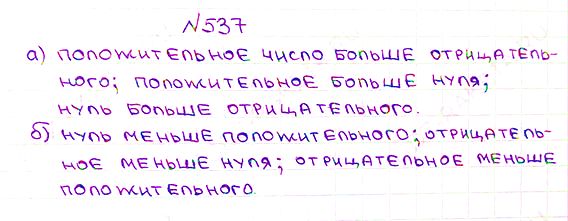 №537
а) положительное число больше отрицатель-
ного; положительное больше нуля;
нуль больше отрицательного.
б) нуль меньше положительного; отрицатель-
ное меньше нуля; отрицательное меньше
положительного.